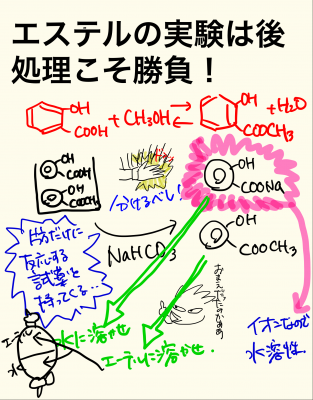 エステルの実験は後
処理こそ勝負！
OH
COOH + CH3OH ⇄ OH
COOCH3 + H2O
OH
COOH
OH
COOCH3
分けるべし！
OH
COONa
NaHCO3
OH
COOCH3
片方だけに
反応する
試薬を
持ってくる…
水に溶かせ
エーテルに溶かせ.
イオンなので
水溶性.
エーテル
水